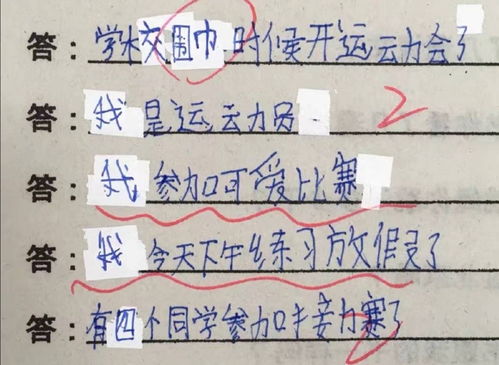 答：学校围巾时候开运动会了
答：我是运动员.
答：我参加可爱比赛
答：我今天下午练习放假了
答：有四个同学参加接力赛了